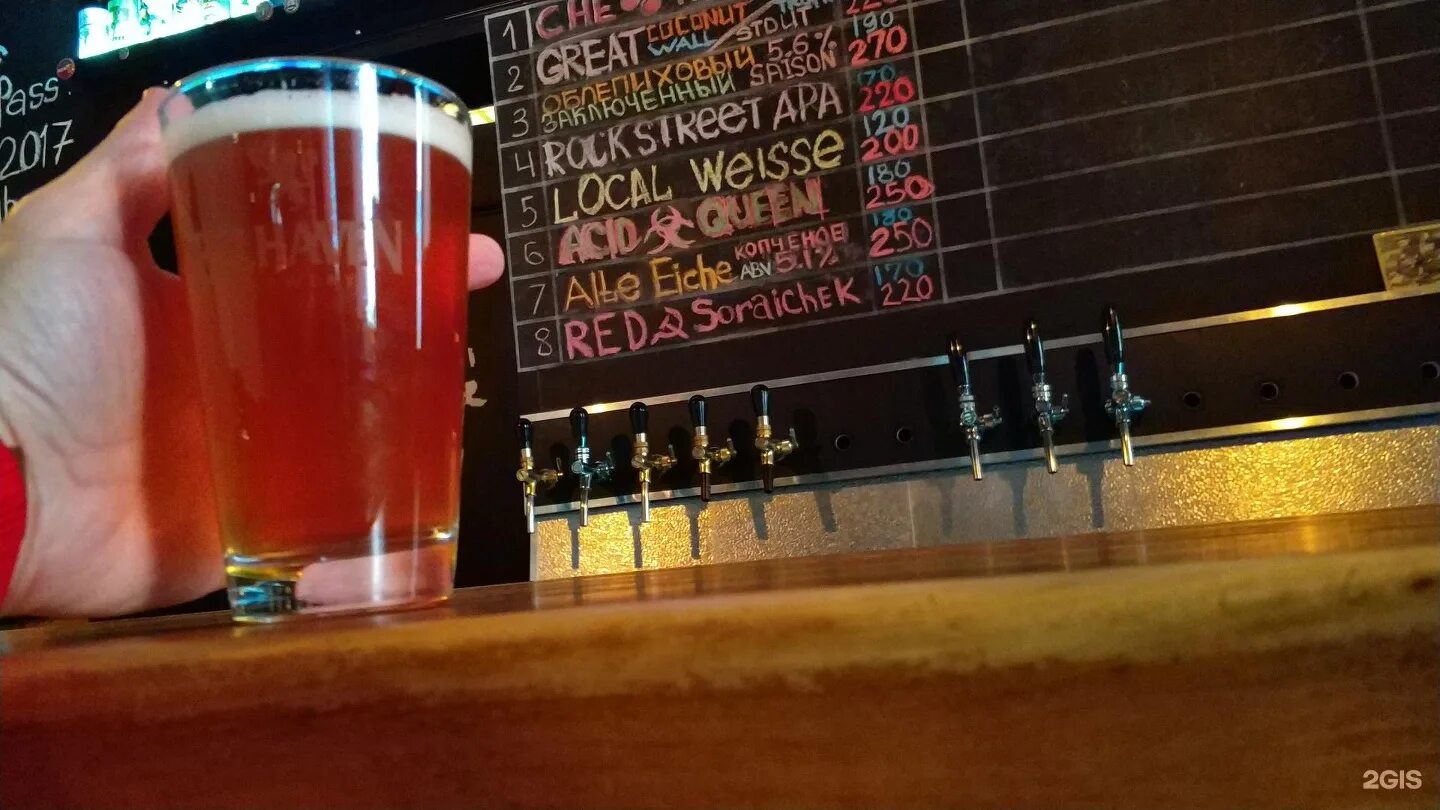 Pass.
2017
1 CHE
2 GREAT COCONUT WALL STOUT 190 270
3 ОБЛЕПИХОВЫЙ ЗАКЛЮЧЕННЫЙ 5.6% SAISON 170 220
4 ROCK STREET APA 120 200
5 LOCAL WEISSE 180 250
6 ACID QUEEN 180 250
7 Alte Eiche КОПЧЕНОЕ ABV 5.1% 170 220
8 RED ☭ Soraichek
HAVEN
2GIS